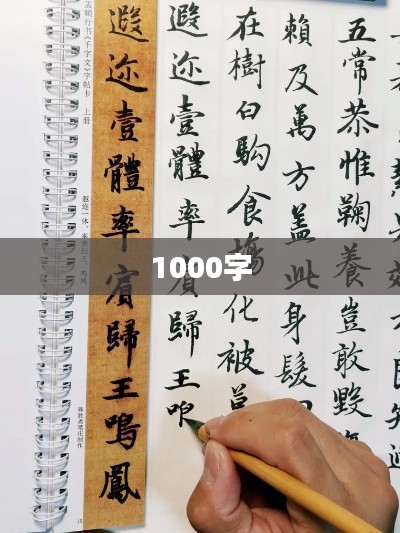 孟頫行书《千字文》字帖卡 上册
遐迩一体，率宾归王。鸣凤
遐迩壹體率賓歸王鳴鳳
遐迩壹體率賓歸王
在樹白駒食場化被
賴及萬方盖此身髮
五常恭惟鞠養豈敢毀
1000字